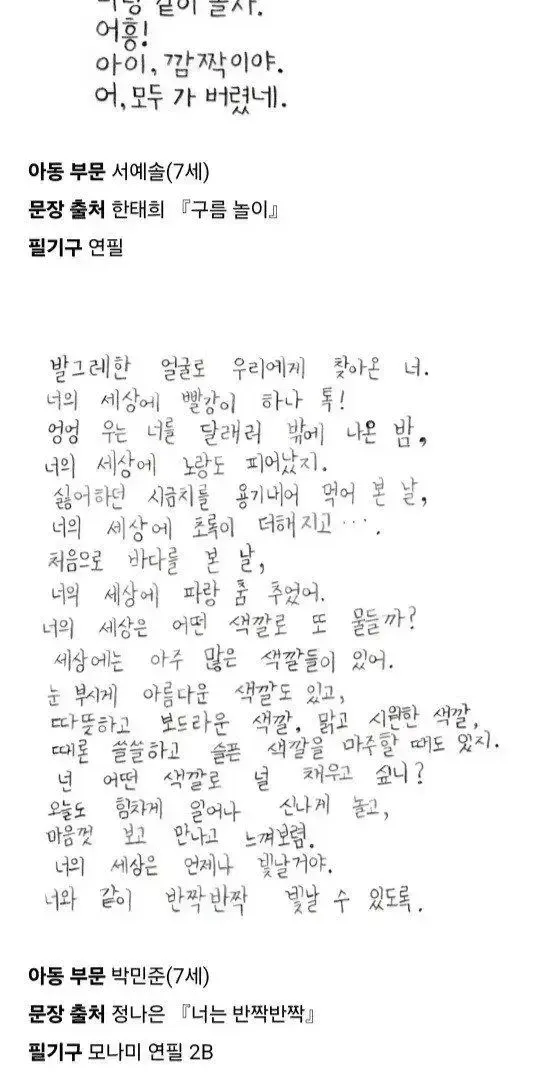 같이 놀자.
어흥!
아이, 깜짝이야.
어, 모두 가 버렸네.
아동 부문 서예솔(7세)
문장 출처 한태희 『구름 놀이』
필기구 연필
발그레한 얼굴로 우리에게 찾아온 너.
너의 세상에 빨강이 하나 톡!
엉엉 우는 너를 달래러 밖에 나온 밤,
너의 세상에 노랑도 피어났지.
싫어하던 시금치를 용기내어 먹어 본 날,
너의 세상에 초록이 더해지고….
처음으로 바다를 본 날,
너의 세상에 파랑 춤 추었어.
너의 세상은 어떤 색깔로 또 물들까?
세상에는 아주 많은 색깔들이 있어.
눈 부시게 아름다운 색깔도 있고,
따뜻하고 보드라운 색깔, 맑고 시원한 색깔,
때론 쓸쓸하고 슬픈 색깔을 마주할 때도 있지.
넌 어떤 색깔로 널 채우고 싶니?
오늘도 힘차게 일어나 신나게 놀고,
마음껏 보고 만나고 느껴보렴.
너의 세상은 언제나 빛날거야.
너와 같이 반짝반짝 빛날 수 있도록.
아동 부문 박민준(7세)
문장 출처 정나은 『너는 반짝반짝』
필기구 모나미 연필 2B